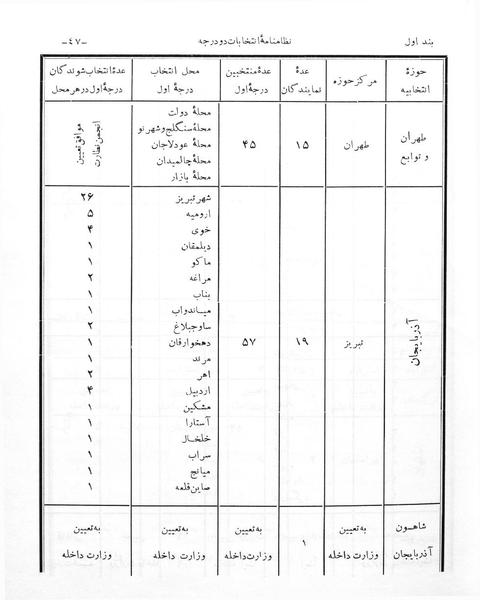 بند اول نظامنامهٔ انتخابات دو درجه -۴۷-
حوزهٔ انتخابیه مرکز حوزه عدهٔ نمایندگان عدهٔ منتخبین درجهٔ اول محل انتخاب درجهٔ اول عدهٔ انتخاب شوندگان درجهٔ اول در هر محل
طهران و توابع طهران ۱۵ ۴۵ محلهٔ دولت موافق تعیین انجمن نظارت
محلهٔ سنگلج و شهر نو
محلهٔ عودلاجان
محلهٔ چالمیدان
محلهٔ بازار
آذربایجان تبریز ۱۹ ۵۷ شهر تبریز ۲۶
ارومیه ۵
خوی ۴
دیلمقان ۱
ماکو ۱
مراغه ۲
بناب ۱
میاندواب ۱
ساوجبلاغ ۲
دهخوارقان ۱
مرند ۱
اهر ۲
اردبیل ۴
مشکین ۱
آستارا ۱
خلخال ۱
سراب ۱
میانج ۱
صاین قلعه ۱
شاهسون آذربایجان به تعیین وزارت داخله ۱ به تعیین وزارت داخله به تعیین وزارت داخله به تعیین وزارت داخله